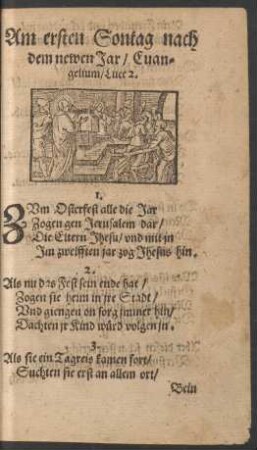 Am ersten Sontag nach
dem newen Jar / Euan-
gelium / Luce 2.
1.
ZVm Osterfest alle die Jar
Zogen gen Jerusalem dar /
Die Eltern Jhesu / vnd mit jn
Im zwelfften jar zog Jhesus hin.
2.
Als nu das Fest sein ende hat /
Zogen sie heim in jre Stadt /
Vnd giengen on sorg jmmer hin /
Dachten jr Kind würd volgen jn.
3.
Als sie ein Tagreis kamen fort /
Suchten sie erst an allem ort /
Bein